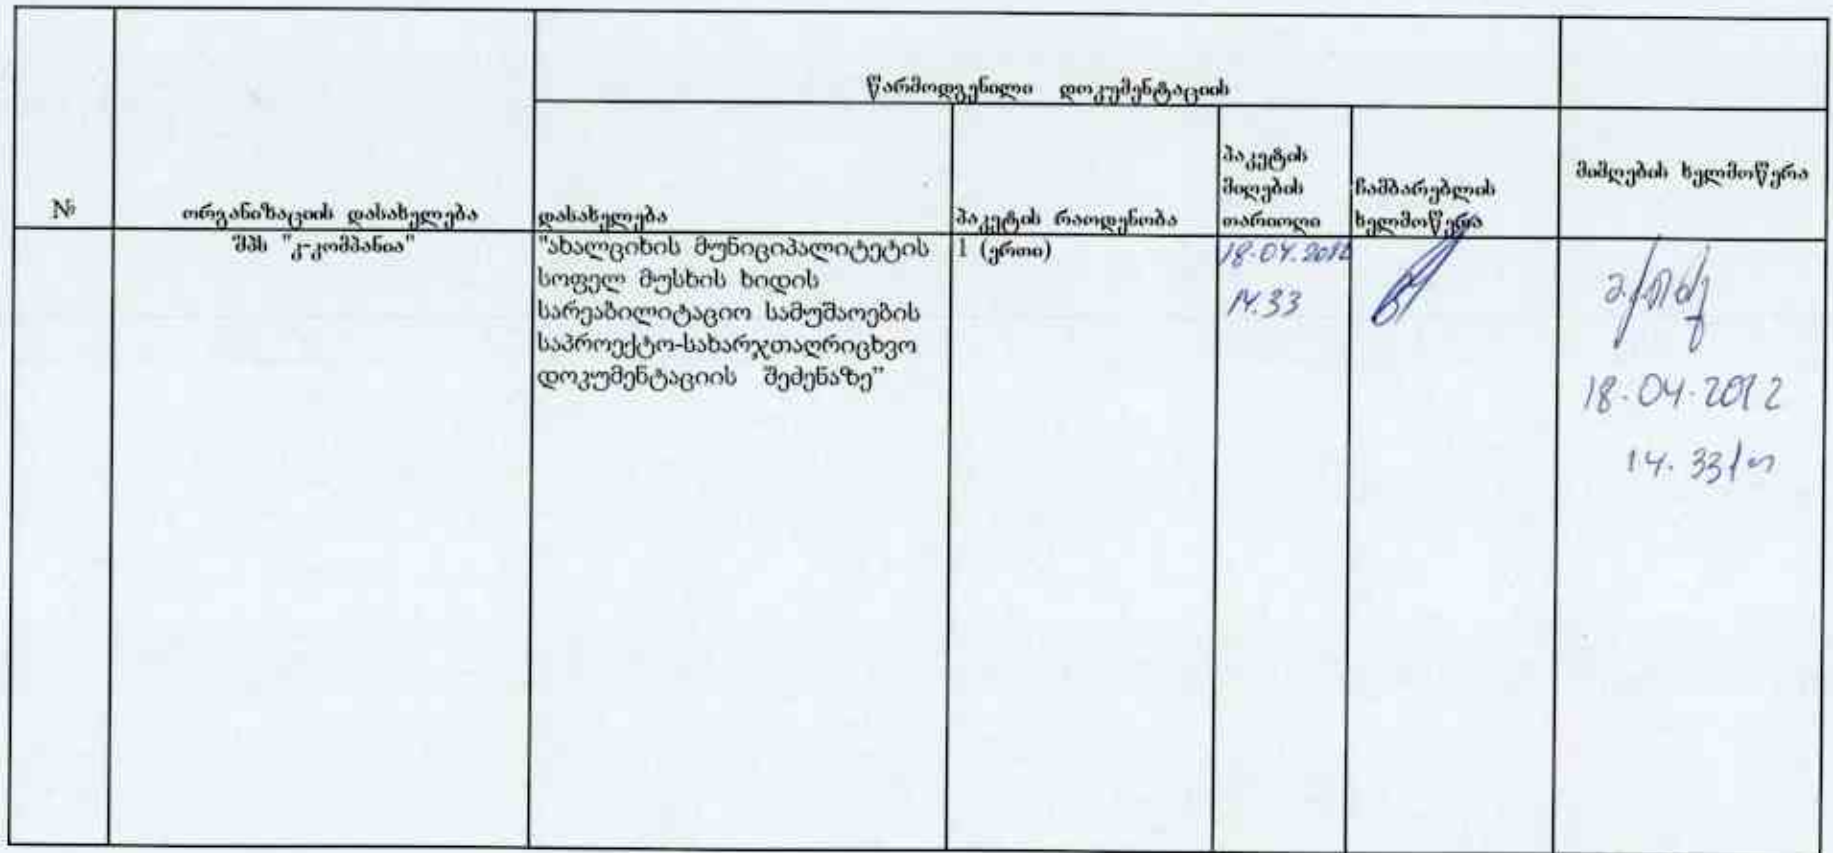 წარმოდგენილი დოკუმენტაციის
№
ორგანიზაციის დასახელება
დასახელება
პაკეტის რაოდენობა
პაკეტის
მიღების
თარიღი
ჩამბარებლის
ხელმოწერა
მიმღების ხელმოწერა
შპს "კ-კომპანია"
"ახალციხის მუნიციპალიტეტის
სოფელ მუსხის ხიდის
სარეაბილიტაციო სამუშაოების
საპროექტო-სახარჯთაღრიცხვო
დოკუმენტაციის შეძენაზე"
1 (ერთი)
18-04.2012
14.33
18-04-2012
14.33